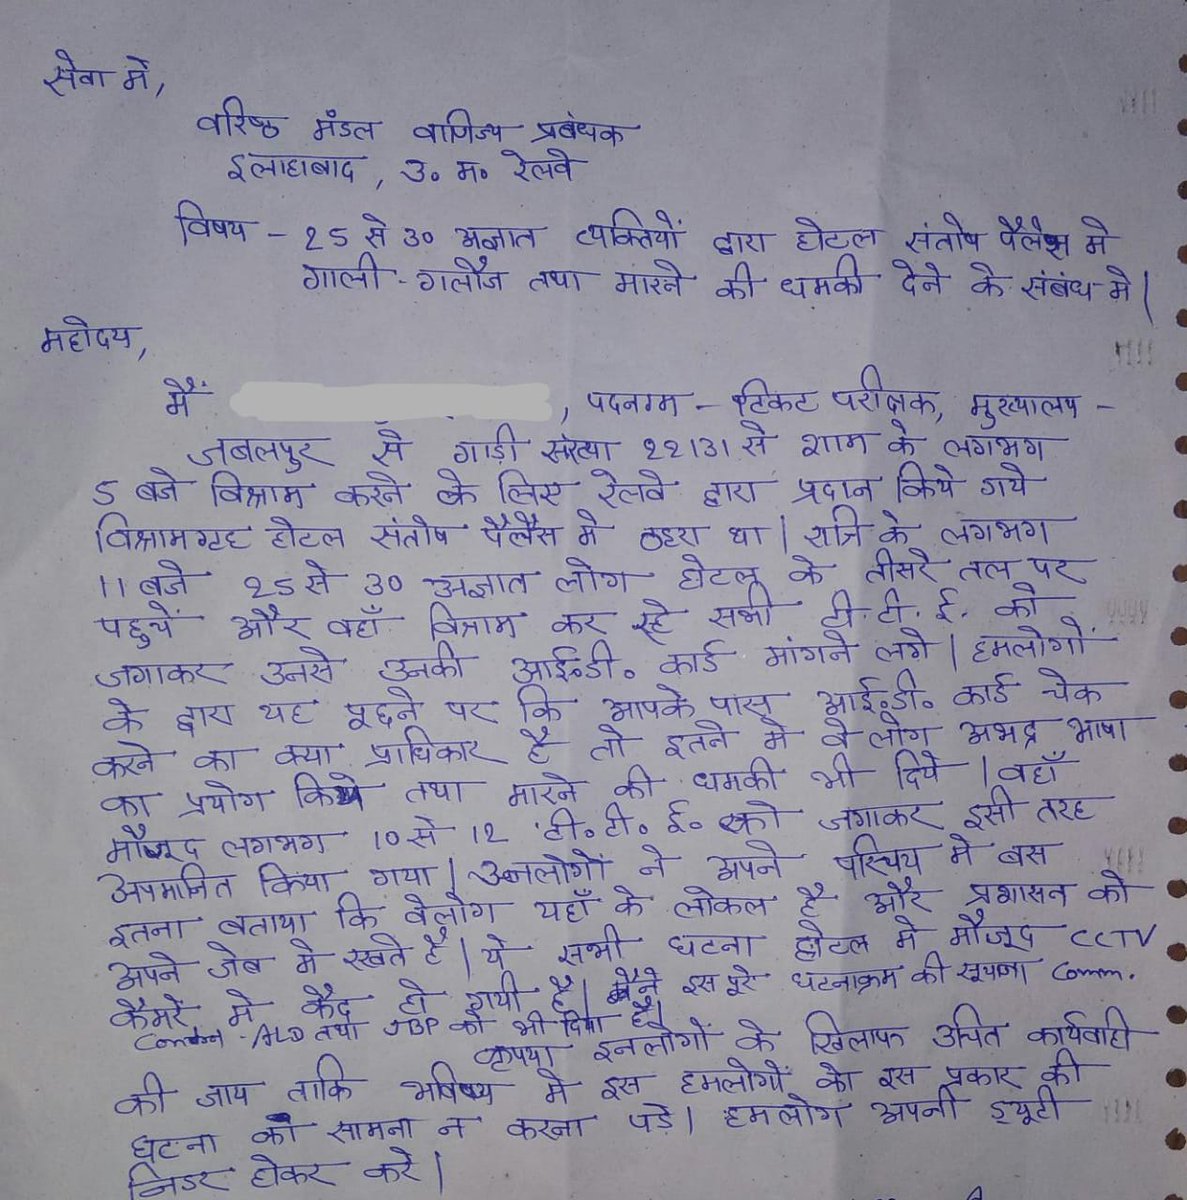 सेवा में,
वरिष्ठ मंडल वाणिज्य प्रबंधक
इलाहाबाद, उ॰ म॰ रेलवे
विषय - 25 से 30 अज्ञात व्यक्तियों द्वारा होटल संतोष पैलेस मे
गाली - गलौज तथा मारने की धमकी देने के संबंध मे |
महोदय,
मैं , पदनाम - टिकट परीक्षक, मुख्यालय -
जबलपुर से गाड़ी संख्या 22131 से शाम के लगभग
5 बजे विश्राम करने के लिए रेलवे द्वारा प्रदान किये गये
विश्रामगृह होटल संतोष पैलैस मे ठहरा था | रात्रि के लगभग
11 बजे 25 से 30 अज्ञात लोग होटल के तीसरे तल पर
पहुचें और वहाँ विश्राम कर रहे सभी टी.टी.ई. को
जगाकर उनसे उनकी आई॰डी॰ कार्ड मांगने लगे | हमलोगों
के द्वारा यह पूछने पर कि आपके पास आई॰डी॰ कार्ड चेक
करने का क्या प्राधिकार है तो इतने मे वे लोग अभद्र भाषा
का प्रयोग किये तथा मारने की धमकी भी दिये | वहाँ
मौजूद लगभग 10 से 12 टी॰टी॰ई॰ को जगाकर इसी तरह
अपमानित किया गया | उनलोगों ने अपने परिचय मे बस
इतना बताया कि वेलोग यहाँ के लोकल है और प्रशासन को
अपने जेब मे रखते है | ये सभी घटना होटल मे मौजूद CCTV
कैमरें मे कैद हो गयी है | मैने इस पूरे घटनाक्रम की सूचना Comm.
Control - ALD तथा JBP को भी दिया है|
कृपया इनलोगों के खिलाफ उचित कार्यवाही
की जाय ताकि भविष्य मे इस हमलोगों को इस प्रकार की
घटना को सामना न करना पड़े | हमलोग अपनी ड्यूटी
निडर होकर करे |